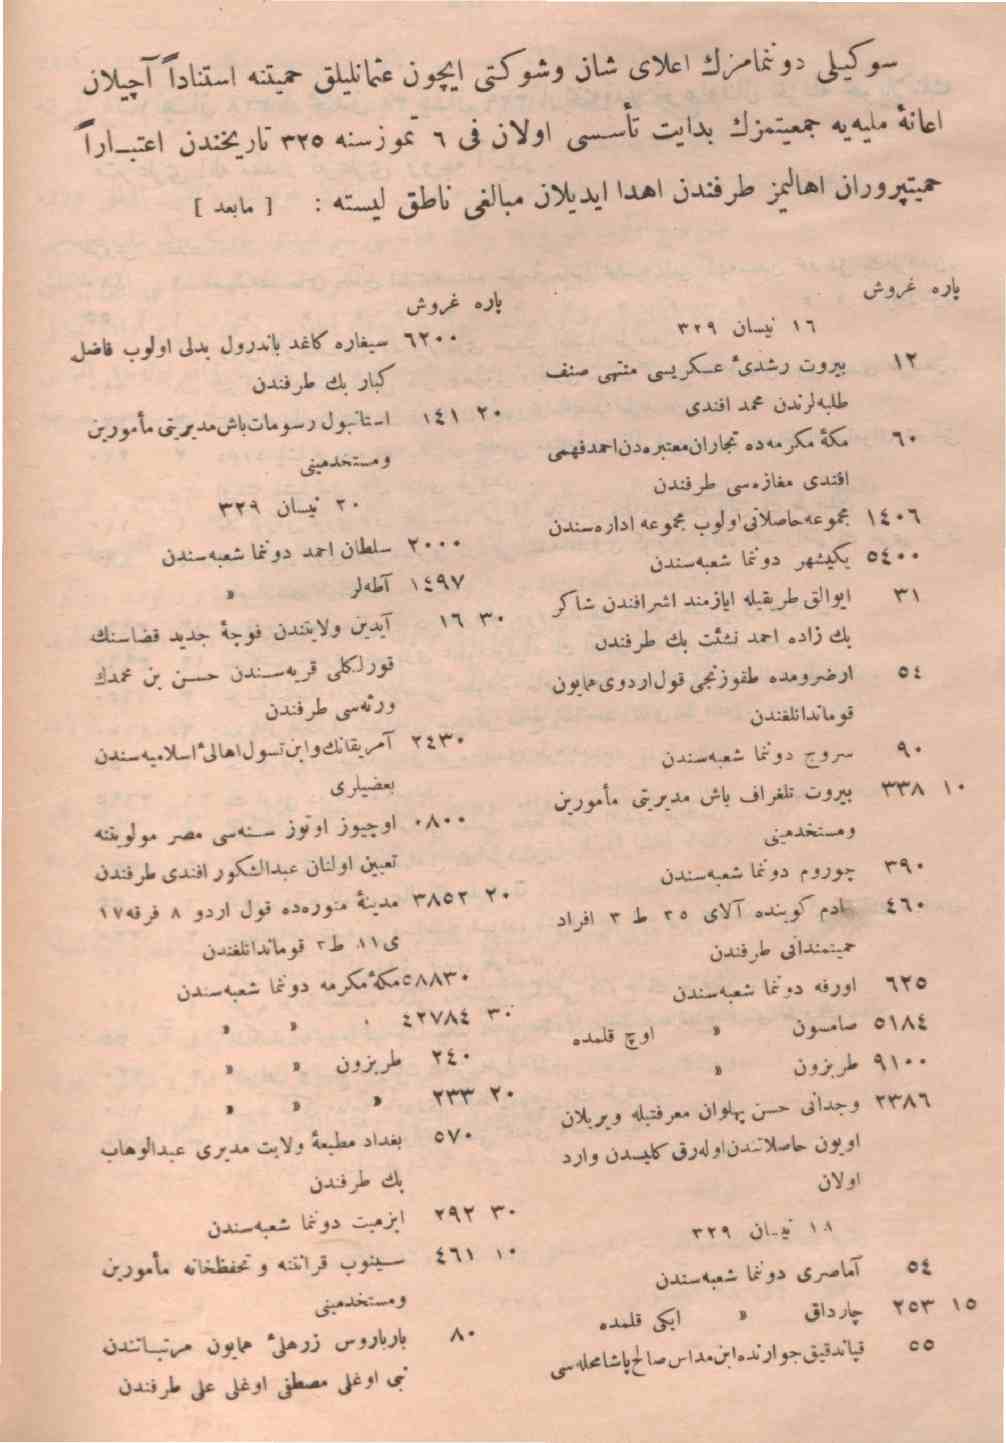 سوكیلی دوننمامزك اعلای شان وشوكتی ایچون عثمانلیلق حمیتنه استناداً آچیلان
اعانهٔ ملیه‌یه جمعیتمزك بدایت تأسسی اولان فی ٦ تموز سنه ٣٢٥ تاریخندن اعتبـاراً
حمیتپروران اهالیمز طرفندن اهدا ایدیلان مبالغی ناطق لیسته : [ مابعد ]
پاره غروش
١٦ نیسان ٣٢٩
١٢ بیروت رشدیهٔ عسكریسی منتهی صنف
طلبه‌لرندن محمد افندی
٦٠ مكهٔ مكرمه‌ده تجاران معتبره‌دن احمد فهمی
افندی مغازه‌سی طرفندن
١٤٠٦ مجموعه حاصلاتی اولوب مجموعه اداره‌سندن
٥٤٠٠ یكیشهر دوننما شعبه‌سندن
٣١ ایوالق طریقیله ایازمند اشرافندن شاكر
بك زاده احمد نشئت بك طرفندن
٥٤ ارضرومده طقوزنجی قول اردوی همایون
قوماندانلغندن
٩٠ سروج دوننما شعبه‌سندن
١٠ ٣٣٨ بیروت تلغراف باش مدیریتی مأمورین
ومستخدمینی
٣٩٠ چوروم دوننما شعبه‌سندن
٤٦٠ یادم كوینده آلای ٢٥ ط ٣ افراد
حمیتمندانی طرفندن
٦٢٥ اورفه دوننما شعبه‌سندن
٥١٨٤ صامسون » اوچ قلمده
٩١٠٠ طربزون »
٢٣٨٦ وجدانی حسن پهلوان معرفتیله ویریلان
اویون حاصلاتندن اوله‌رق كلیسدن وارد
اولان
١٨ نیـسان ٣٢٩
٥٤ آماصری دوننما شعبه‌سندن
١٥ ٢٥٣ چارداق » ایكی قلمده
٥٥ قپاندقیق جوارنده ابن مداس صالح پاشا محله‌سی
پاره غروش
٦٢٠٠ سیغاره كاغد باندرول بدلی اولوب فاضل
كبار بك طرفندن
٢٠ ١٤١ استانبول رسومات باش مدیریتی مأمورین
ومستخدمینی
٢٠ نیسان ٣٢٩
٢٠٠٠ سلطان احمد دوننما شعبه‌سندن
١٤٩٧ آطه‌لر »
٣٠ ١٦ آیدین ولایتندن فوچهٔ جدید قضاسنك
قوزلكلی قریه‌سـندن حسـن بن محمدك
ورثه‌سی طرفندن
٢٤٣٠ آمریقانك واین‌تسول اهالیٔ اسلامیه‌سندن
بعضیلری
٠٨٠٠ اوچیوز اوتوز سـنه‌سی مصر مولویتنه
تعیین اولنان عبدالشكور افندی طرفندن
٢٠ ٣٨٥٢ مدینهٔ منوره‌ده قول اردو ٨ فرقه ١٧
ی ١١ ط ٢ قوماندانلغندن
٥٨٨٣٠ مكهٔ مكرمه دوننما شعبه‌سندن
٣٠ ٤٢٧٨٤ » »
٢٤٠ طربزون » »
٢٠ ٢٣٣ » » »
٥٧٠ بغداد مطبعهٔ ولایت مدیری عبدالوهاب
بك طرفندن
٣٠ ٢٩٢ ازمیت دوننما شعبه‌سندن
١٠ ٤٦١ سـینوب قرانتنه و تحفظخانه مأمورین
ومستخدمینی
٨٠ بارباروس زرهلیٔ همایون مرتبـاتندن
نبی اوغلی مصطفی اوغلی علی طرفندن